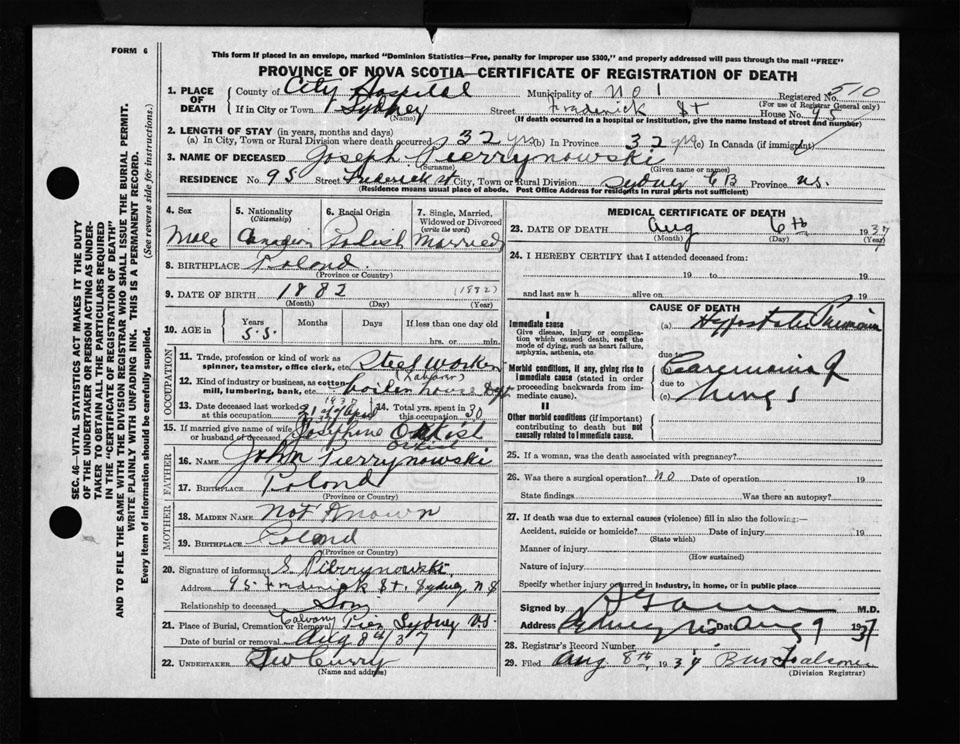 FORM 6
This form if placed in an envelope, marked "Dominion Statistics—Free, penalty for improper use $300," and properly addressed will pass through the mail "FREE"
PROVINCE OF NOVA SCOTIA—CERTIFICATE OF REGISTRATION OF DEATH
SEC. 46—VITAL STATISTICS ACT MAKES IT THE DUTY
OF THE UNDERTAKER OR PERSON ACTING AS UNDER-
TAKER TO OBTAIN ALL THE PARTICULARS REQUIRED
IN THE "CERTIFICATE OF REGISTRATION OF DEATH"
AND TO FILE THE SAME WITH THE DIVISION REGISTRAR WHO SHALL ISSUE THE BURIAL PERMIT.
WRITE PLAINLY WITH UNFADING INK. THIS IS A PERMANENT RECORD.
Every item of information should be carefully supplied. (See reverse side for instructions.)
1. PLACE OF DEATH
County of City Hospital Municipality of No 1 Registered No. 510
(For use of Registrar General only)
If in City or Town Sydney Street Frederick St House No. 95
(Name) (If death occurred in a hospital or institution, give the name instead of street and number)
2. LENGTH OF STAY (in years, months and days)
(a) In City, Town or Rural Division where death occurred 32 yrs (b) In Province 32 yrs (c) In Canada (if immigrant)
3. NAME OF DECEASED Joseph Pierrynowski
(Surname) (Given name or names)
RESIDENCE No. 95 Street Frederick st City, Town or Rural Division Sydney CB Province N.S.
(Residence means usual place of abode. Post Office Address for residents in rural parts not sufficient)
4. Sex Male
5. Nationality (Citizenship) Canadian
6. Racial Origin Polish
7. Single, Married, Widowed or Divorced (write the word) Married
8. BIRTHPLACE Poland
(Province or Country)
9. DATE OF BIRTH 1882 (1882)
(Month) (Day) (Year)
10. AGE in Years Months Days If less than one day
55 hrs. or min.
OCCUPATION
11. Trade, profession or kind of work as spinner, teamster, office clerk, etc. Steel Worker
(Laborer)
12. Kind of industry or business, as cotton mill, lumbering, bank, etc. boiler house Dept
13. Date deceased last worked at this occupation 1937
14. Total yrs. spent in this occupation 30
15. If married give name of wife or husband of deceased Josephine
FATHER
16. Name John Pierrynowski
17. Birthplace Poland
(Province or Country)
MOTHER
18. Maiden Name Not Known
19. Birthplace Poland
(Province or Country)
20. Signature of informant S. Pierrynowski
Address 95 Frederick St, Sydney N S
Relationship to deceased Son
21. Place of Burial, Cremation or Removal Calvary Sydney N.S.
Date of burial or removal Aug 8th/37
22. UNDERTAKER Curry
(Name and address)
MEDICAL CERTIFICATE OF DEATH
23. DATE OF DEATH Aug 6th 1937
(Month) (Day) (Year)
24. I HEREBY CERTIFY that I attended deceased from:
19 to 19
and last saw h alive on 19
CAUSE OF DEATH
I
Immediate cause
Give disease, injury or complication which caused death, not the mode of dying, such as heart failure, asphyxia, asthenia, etc.
(a) Hypostatic Pneumonia
due to
Morbid conditions, if any, giving rise to immediate cause (stated in order proceeding backwards from immediate cause)
Carcinoma of
due to
(c) Lungs
II
Other morbid conditions (if important) contributing to death but not causally related to immediate cause.
25. If a woman, was the death associated with pregnancy?
26. Was there a surgical operation? no Date of operation 19
State findings Was there an autopsy?
27. If death was due to external causes (violence) fill in also the following:—
Accident, suicide or homicide? Date of injury 19
(State which)
Manner of injury
(How sustained)
Nature of injury
Specify whether injury occurred in industry, in home, or in public place
Signed by M.D.
Address Sydney NS Date Aug 9 1937
28. Registrar's Record Number
29. Filed Aug 8th 1937
(Division Registrar)